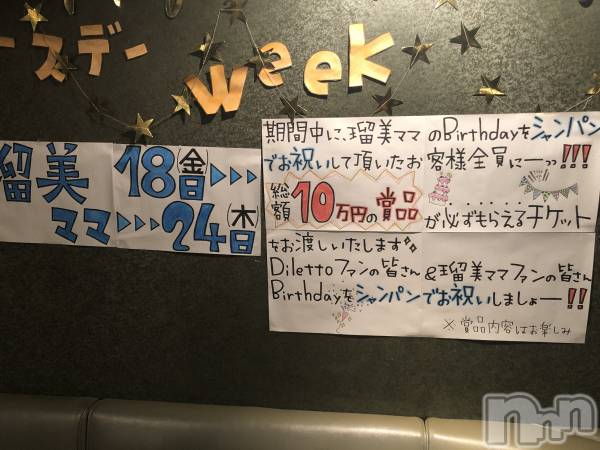 ースデー
week
瑠美 18日(金)▶▶▶
ママ▶▶▶24日(木)
期間中に、瑠美ママのBirthdayをシャンパン
でお祝いして頂いたお客様全員にーっ!!!
総額10万円の賞品・・・・・・
が必ずもらえるチケット
をお渡しいたします
Dilettoファンの皆さん&瑠美ママファンの皆さん
Birthdayをシャンパンでお祝いしましょー!!
※賞品内容はお楽しみ
nnn